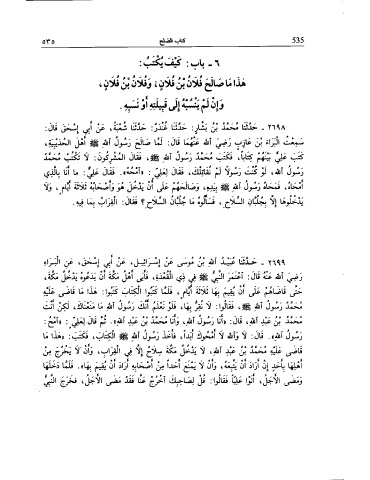 ٥٣٥ كتاب الصلح 535
٦ - باب: كَيْفَ يُكْتَبُ:
هٰذَا مَا صَالَحَ فُلَانُ بْنُ فُلَانٍ، وَفُلَانُ بْنُ فُلَانٍ،
وَإِنْ لَمْ يَنْسُبْهُ إِلَى قَبِيلَتِهِ أَوْ نَسَبِهِ.
٢٦٩٨ - حَدَّثَنَا مُحَمَّدُ بْنُ بَشَّارٍ: حَدَّثَنَا غُنْدَرٌ: حَدَّثَنَا شُعْبَةُ، عَنْ أَبِي إِسْحٰقَ قَالَ:
سَمِعْتُ الْبَرَاءَ بْنَ عَازِبٍ رَضِيَ اللهُ عَنْهُمَا قَالَ: لَمَّا صَالَحَ رَسُولُ اللهِ ﷺ أَهْلَ الْحُدَيْبِيَةِ،
كَتَبَ عَلِيٌّ بَيْنَهُمْ كِتَاباً، فَكَتَبَ: مُحَمَّدٌ رَسُولُ اللهِ ﷺ، فَقَالَ الْمُشْرِكُونَ: لَا تَكْتُبْ مُحَمَّدٌ
رَسُولُ اللهِ، لَوْ كُنْتَ رَسُولاً لَمْ نُقَاتِلْكَ، فَقَالَ لِعَلِيٍّ: «امْحُهُ». فَقَالَ عَلِيٌّ: ما أَنَا بِالَّذِي
أَمْحَاهُ، فَمَحَاهُ رَسُولُ اللهِ ﷺ بِيَدِهِ، وَصَالَحَهُمْ عَلَى أَنْ يَدْخُلَ هُوَ وَأَصْحَابُهُ ثَلَاثَةَ أَيَّامٍ، وَلَا
يَدْخُلُوهَا إِلَّا بِجُلُبَّانِ السِّلَاحِ، فَسَأَلُوهُ مَا جُلُبَّانُ السِّلَاحِ؟ فَقَالَ: الْقِرَابُ بِمَا فِيهِ.
٢٦٩٩ - حَدَّثَنَا عُبَيْدُ اللهِ بْنُ مُوسَى عَنْ إِسْرَائِيلَ، عَنْ أَبِي إِسْحٰقَ، عَنِ الْبَرَاءِ
رَضِيَ اللهُ عَنْهُ قَالَ: اعْتَمَرَ النَّبِيُّ ﷺ فِي ذِي الْقَعْدَةِ، فَأَبَى أَهْلُ مَكَّةَ أَنْ يَدَعُوهُ يَدْخُلُ مَكَّةَ،
حَتَّى قَاضَاهُمْ عَلَى أَنْ يُقِيمَ بِهَا ثَلَاثَةَ أَيَّامٍ، فَلَمَّا كَتَبُوا الْكِتَابَ كَتَبُوا: هٰذَا مَا قَاضَى عَلَيْهِ
مُحَمَّدٌ رَسُولُ اللهِ ﷺ، فَقَالُوا: لَا نُقِرُّ بِهَا، فَلَوْ نَعْلَمُ أَنَّكَ رَسُولُ اللهِ مَا مَنَعْنَاكَ، لٰكِنْ أَنْتَ
مُحَمَّدُ بْنُ عَبْدِ اللهِ، قَالَ: «أَنَا رَسُولُ اللهِ، وَأَنَا مُحَمَّدُ بْنُ عَبْدِ اللهِ». ثُمَّ قَالَ لِعَلِيٍّ: «امْحُ:
رَسُولُ اللهِ». قَالَ: لَا وَاللهِ لَا أَمْحُوكَ أَبَداً، فَأَخَذَ رَسُولُ اللهِ ﷺ الْكِتَابَ، فَكَتَبَ: «هٰذَا مَا
قَاضَى عَلَيْهِ مُحَمَّدُ بْنُ عَبْدِ اللهِ، لَا يَدْخُلُ مَكَّةَ سِلَاحٌ إِلَّا فِي الْقِرَابِ، وَأَنْ لَا يَخْرُجَ مِنْ
أَهْلِهَا بِأَحَدٍ إِنْ أَرَادَ أَنْ يَتْبَعَهُ، وَأَنْ لَا يَمْنَعَ أَحَداً مِنْ أَصْحَابِهِ أَرَادَ أَنْ يُقِيمَ بِهَا». فَلَمَّا دَخَلَهَا
وَمَضَى الْأَجَلُ، أَتَوْا عَلِيّاً فَقَالُوا: قُلْ لِصَاحِبِكَ اخْرُجْ عَنَّا فَقَدْ مَضَى الْأَجَلُ، فَخَرَجَ النَّبِيُّ